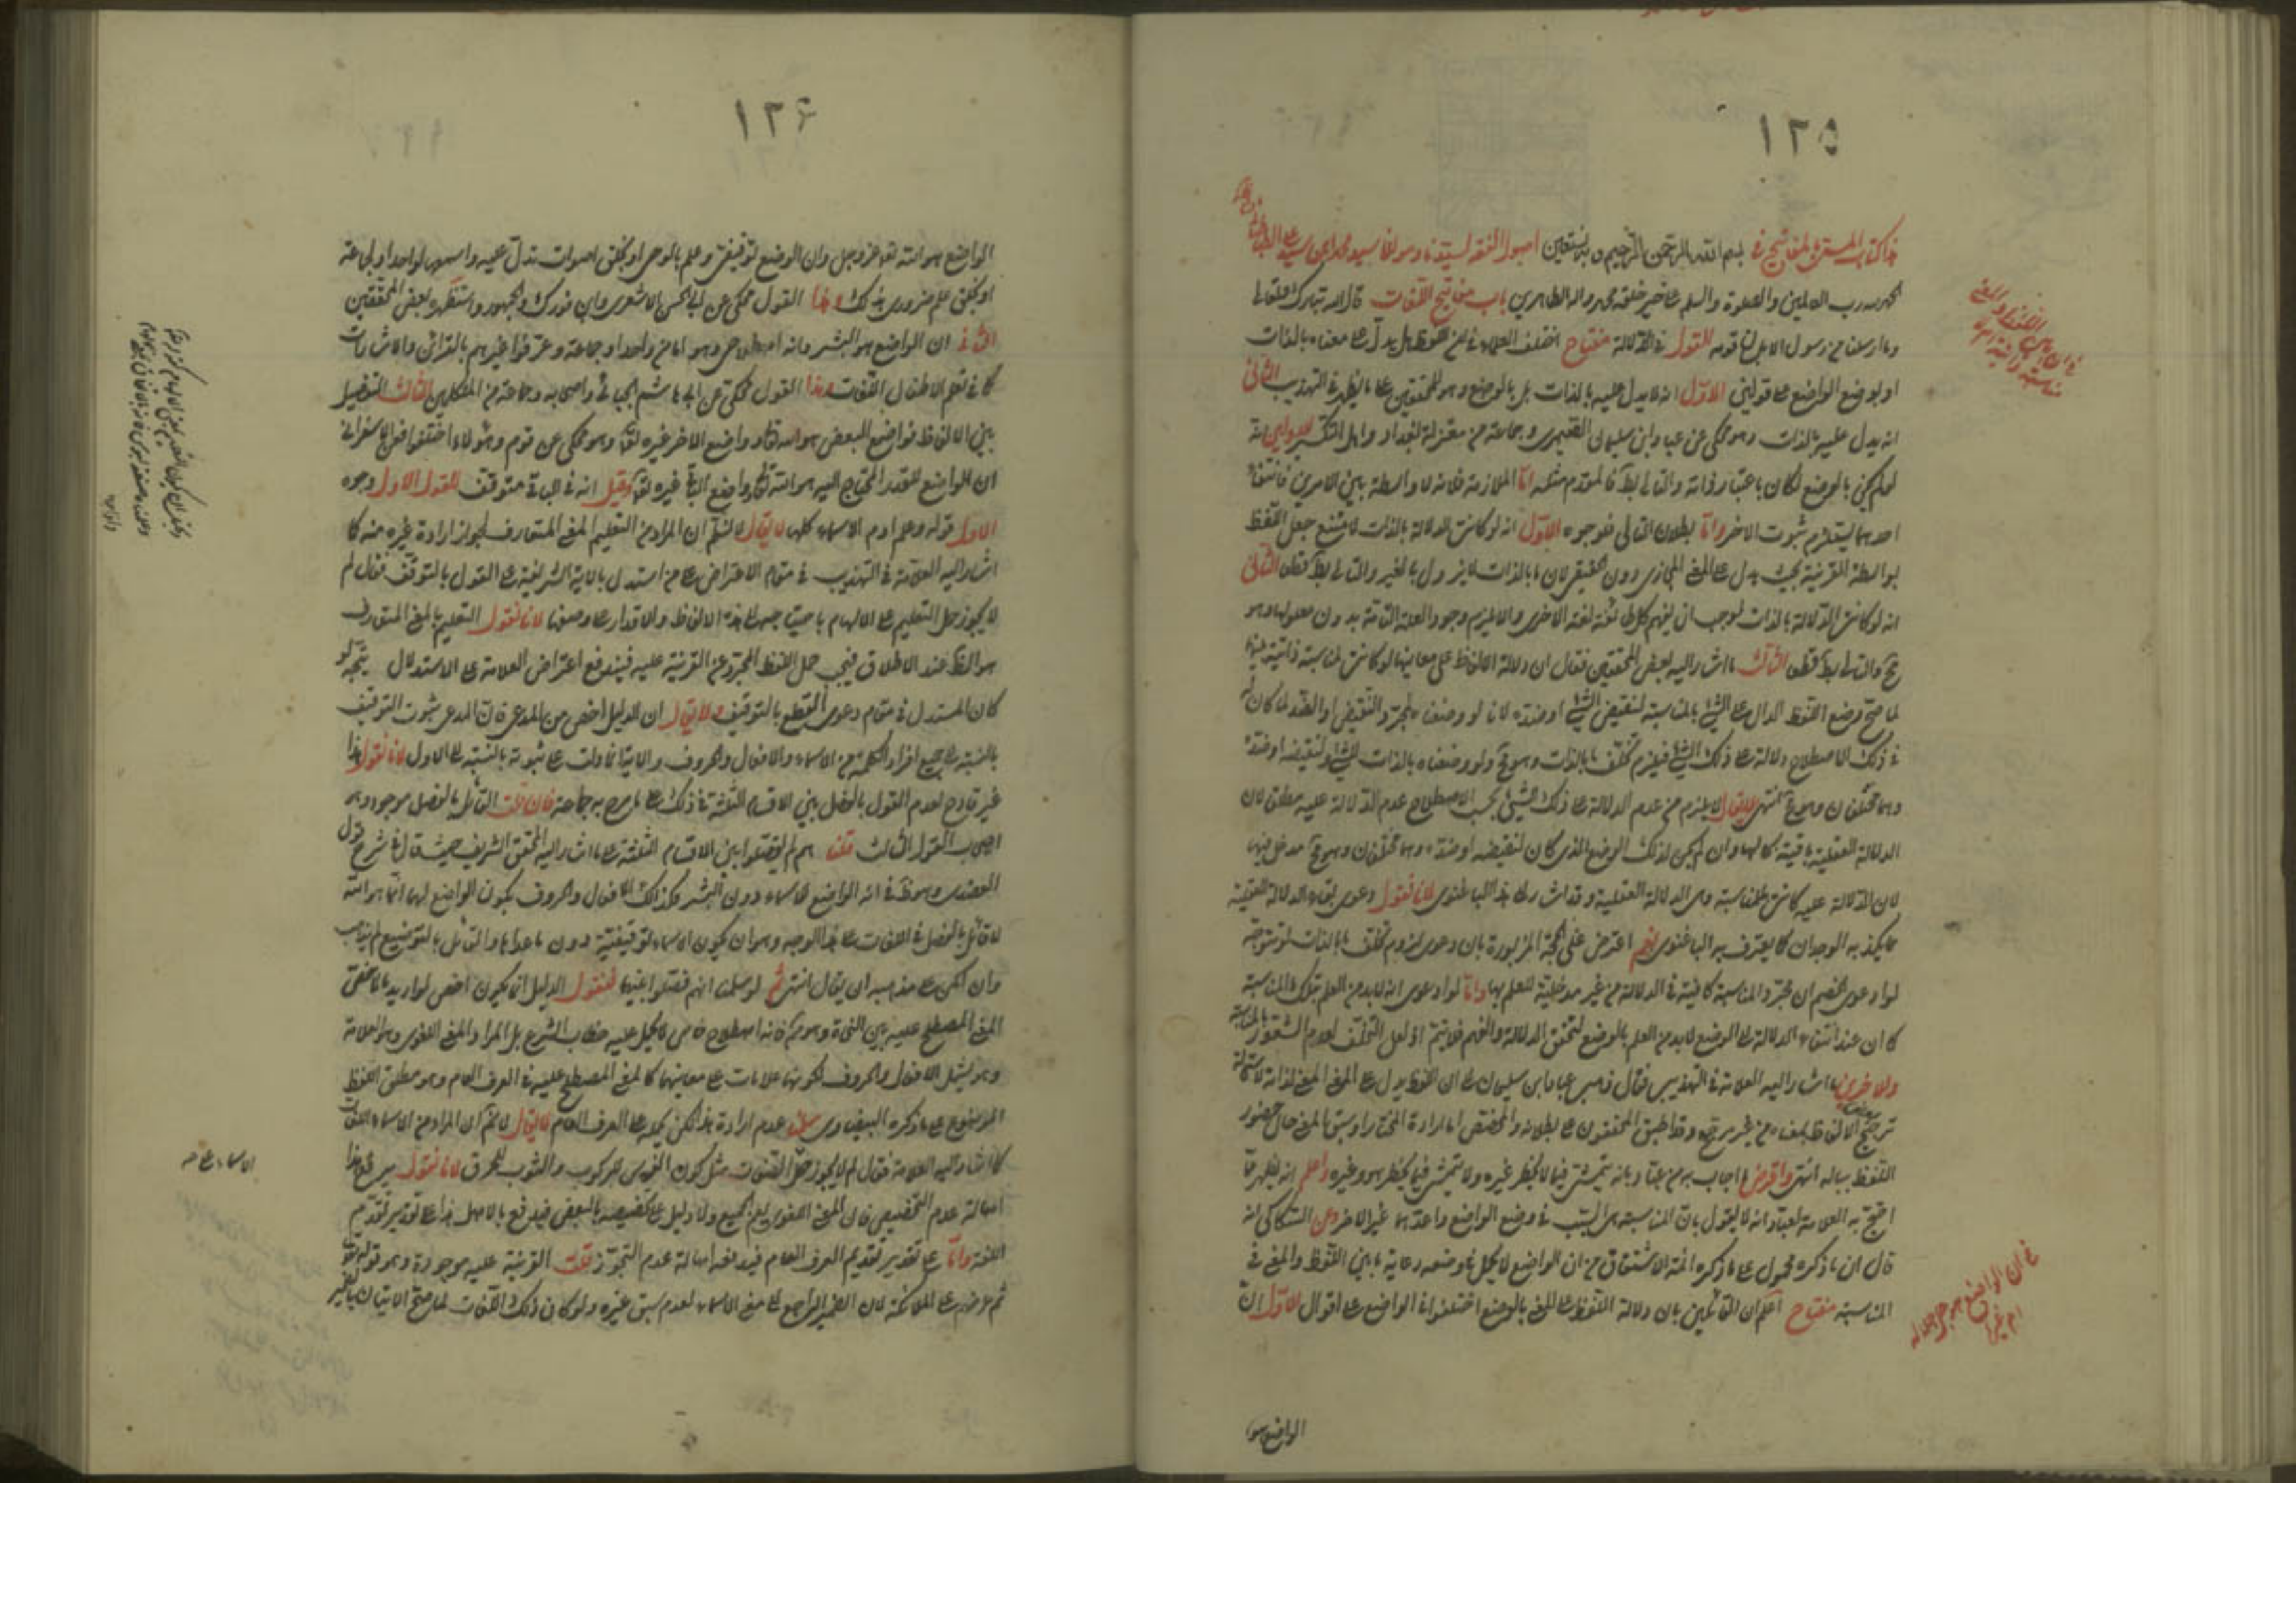 ١٢٥
هذا كتاب المسمى بالمفاتيح في بسم الله الرحمن الرحيم وبه نستعين اصول الفقه لسيدنا ومولانا سيد محمد ابن سيد علي الطباطبائي
الحمد لله رب العالمين والصلوة والسلم على خير خلقه محمد واله الطاهرين باب مفاتيح اللغات قال الله تبارك وتعالى
وما ارسلنا من رسول الا بلسان قومه القول في الدلالة مفتاح اختلف العلماء في ان اللفظ هل يدل على معناه بالذات
او بوضع الواضع على قولين الاول انه لا يدل عليه بالذات بل بالوضع وهو للمحققين على ما يظهر في التهذيب الثاني
انه يدل عليه بالذات وهو محكي عن عباد ابن سليمان الصيمري وجماعة من معتزلة بغداد واهل التكسير للاولين انه
لو لم يكن بالوضع لكان باعتبار ذاته والتالي بط فالمقدم مثله اما الملازمة فلانه لا واسطة بين الامرين فانتفاء
احدهما يستلزم ثبوت الاخر واما بطلان التالي فلوجوه الاول انه لو كانت الدلالة بالذات لامتنع جعل اللفظ
بواسطة القرينة بحيث يدل على المعنى المجازي دون الحقيقي لان ما بالذات لا يزول بالغير والتالي بط قطعا الثاني
انه لو كانت الدلالة بالذات لوجب ان يفهم كل طائفة لغة الاخرى والا يلزم وجود العلة التامة بدون معلولها وهو
مح والتالي بط قطعا الثالث ما اشار اليه بعض المحققين فقال ان دلالة الالفاظ على معانيها لو كانت لمناسبة ذاتية بينها
لما صح وضع اللفظ الدال على الشيء بالمناسبة لنقيض الشيء او ضده لانا لو وضعناه لمجرد النقيض او الضد لما كان له
في ذلك الاصطلاح دلالة على ذلك الشيء فيلزم تخلف ما بالذات وهو مح ولو وضعناه بالذات للشيء ولنقيضه او ضده
وهما مختلفان وهو مح انتهى لا يقال لا يلزم من عدم الدلالة على ذلك الشيء بحسب الاصطلاح عدم الدلالة عليه مطلق لان
الدلالة العقلية باقية بحالها وان لم يكن لذلك الوضع الذي كان لنقيضه او ضده وهما مختلفان وهو مح مدخل فيها
لان الدلالة عليه كانت بالمناسبة وهي الدلالة العقلية وقد اشار الى هذا الباغنوي لانا نقول دعوى بقاء الدلالة العقلية
مما يكذبه الوجدان كما يعترف به الباغنوي نعم اعترض على الحجة المزبورة بان دعوى لزوم تخلف ما بالذات انما يتوجه
لو ادعى الخصم ان مجرد المناسبة كافية في الدلالة من غير مدخلية للعلم بها واما لو ادعى انه لابد من العلم بتلك المناسبة
كما ان عند انتفاء الدلالة على الوضع لابد من العلم بالوضع لتحقق الدلالة والفهم فلا يتم اذ لعل التخلف لعدم الشعور بالمناسبة
وللاخرين ما اشار اليه العلامة في التهذيب فقال ذهب عباد ابن سليمان الى ان اللفظ يدل على المعنى لذاته لاستحالة
ترجيح بعض الالفاظ بمعناه من غير مرجح وقد اطبق المحققون على بطلانه والمخصص اما ارادة المختار او سبق المعنى حال حضور
اللفظ بباله انتهى واعترض
احتج به العلامة لعباد انه لا يقول بان المناسبة هي السبب في وضع الواضع واعدها غير الاخر وعن السكاكي انه
قال ان ما ذكره محمول على ما ذكره ائمة الاشتقاق من ان الواضع لا يخل في وضعه رعاية ما بين اللفظ والمعنى في
المناسبة مفتاح اعلم ان القائلين بان دلالة اللفظ على المعنى بالوضع اختلفوا في الواضع على اقوال الاول ان
في ان الواضع هو جل جلاله
ام غيره
الواضع هو
١٢۶
الواضع هو الله تعالى عز وجل وان الوضع توقيفي وعلم بالوحي او بخلق اصوات تدل عليه واسمعها لواحد او لجماعة
او بخلق علم ضروري بذلك وهذا القول محكي عن ابي الحسن الاشعري وابن فورك والجمهور واستظهره بعض المحققين
الثاني ان الواضع هو البشر وانه اصطلاحي وهو اما من واحد او جماعة وعرفوا غيرهم بالقرائن والاشارات
كما في تعلم الاطفال اللغات وهذا القول محكي عن ابي هاشم الجبائي واصحابه وجماعة من المتكلمين الثالث التفصيل
بين الالفاظ فواضع البعض هو الله تعالى وواضع الاخر غيره تعالى وهو محكي عن قوم وهؤلاء اختلفوا فعن الاسفرائني
ان الواضع للقدر المحتاج اليه هو الله تعالى وواضع الباقي غيره تعالى وقيل انه في الباقي متوقف للقول الاول وجوه
الاول قوله وعلم ادم الاسماء كلها لا يقال لا نسلم ان المراد من التعليم المعنى المتعارف لجواز ارادة غيره منه كما
اشار اليه العلامة في التهذيب في مقام الاعتراض على من استدل بالاية الشريفة على القول بالتوقف فقال لم
لا يجوز حمل التعليم على الالهام باحتياجهم الى هذه الالفاظ والاقدار على وضعها لانا نقول التعليم بالمعنى المتعارف
هو الظ عند الاطلاق فيجب حمل اللفظ المجرد عن القرينة عليه فيندفع اعتراض العلامة على الاستدلال يتجه لو
كان المستدل في مقام دعوى القطع بالتوقيف ولا يقال ان الدليل اخص من المدعى فان المدعى ثبوت التوقيف
بالنسبة الى جميع افراد الكلمة من الاسماء والافعال والحروف والاية انما دلت على ثبوته بالنسبة الى الاول لانا نقول هذا
غير قادح لعدم القول بالفصل بين الاقسام الثلثة في ذلك على ما صرح به جماعة فان قلت القائل بالفصل موجود وهو
اصحاب القول الثالث قلنا هم لم يفصلوا بين الاقسام الثلثة على ما اشار اليه المحقق الشريف حيث قال في شرح قول
العضدي وهو ظ في انه الواضع للاسماء دون البشر فكذلك الافعال والحروف يكون الواضع لها ايضا هو الله
لا قائل بالفصل في اللغات على هذا الوجه وهو ان يكون الاسماء توقيفية دون ما عداها والقائل بالتوزيع لم يذهب
وان امكن على مذهبه ان يقال انتهى ثم لو سلمنا انهم فصلوا فيها لنقول الدليل انما يكون اخص لو اريد بالاسماء
المعنى المصطلح عليه بين النحاة وهو مم فانه اصطلاح خاص لا يحمل عليه خطاب الشرع بل المراد المعنى اللغوي وهو العلامة
وهو يشمل الافعال والحروف لكونها علامات على معانيها كالمعنى المصطلح عليه في العرف العام وهو مطلق اللفظ
الموضوع على ما ذكره البيضاوي سلمنا عدم ارادة هذا لكن يحمل على العرف العام لا يقال لا نم ان المراد من الاسماء اللغات
كما اشار اليه العلامة فقال لم لا يجوز حمل اللغات مثل كون الفرس للركوب والثوب للحرق لانا نقول يدفع هذا
اصالة عدم التخصيص فان المعنى اللغوي يعم الجميع ولا دليل على تخصيصه بالبعض فيدفع بالاصل هذا على تقدير تقديم
اللغة واما على تقدير تقديم العرف العام فيدفعه اصالة عدم التجوز قلت القرينة عليه موجودة وهو قوله تعالى
ثم عرضهم على الملائكة لان الضمير الراجع الى معنى الاسماء لعدم سبق غيره ولو كان ذلك اللغات لما صح الاتيان بالضمير